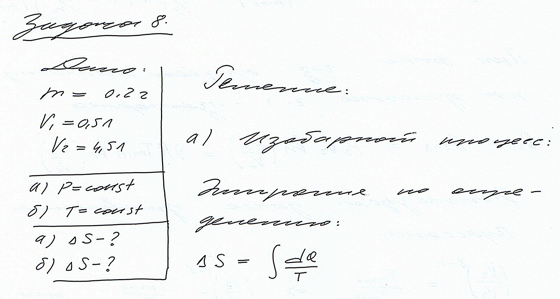 Задача 8.
Дано:
m = 0.2г
V₁ = 0,5л
V₂ = 4,5л
а) P = const
б) T = const
а) ΔS - ?
б) ΔS - ?
Решение:
а) Изобарный процесс:
Энтропия по опре-
делению:
ΔS = ∫ dQ/T